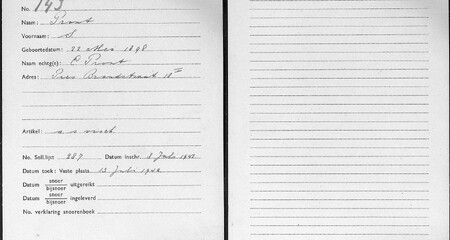 No. 143
Naam: Pront
Voornaam: S
Geboortedatum: 22 Mei 1898
Naam echtg(e): C Pront
Adres: Pres Brandstraat 18 III
Artikel: a s visch
No. Soll.lijst 287 Datum inschr. 8 Juli 1942
Datum toek: Vaste plaats 13 Juli 1942
Datum snoer bijsnoer uitgereikt
Datum snoer bijsnoer ingeleverd
No. verklaring snoerenboek